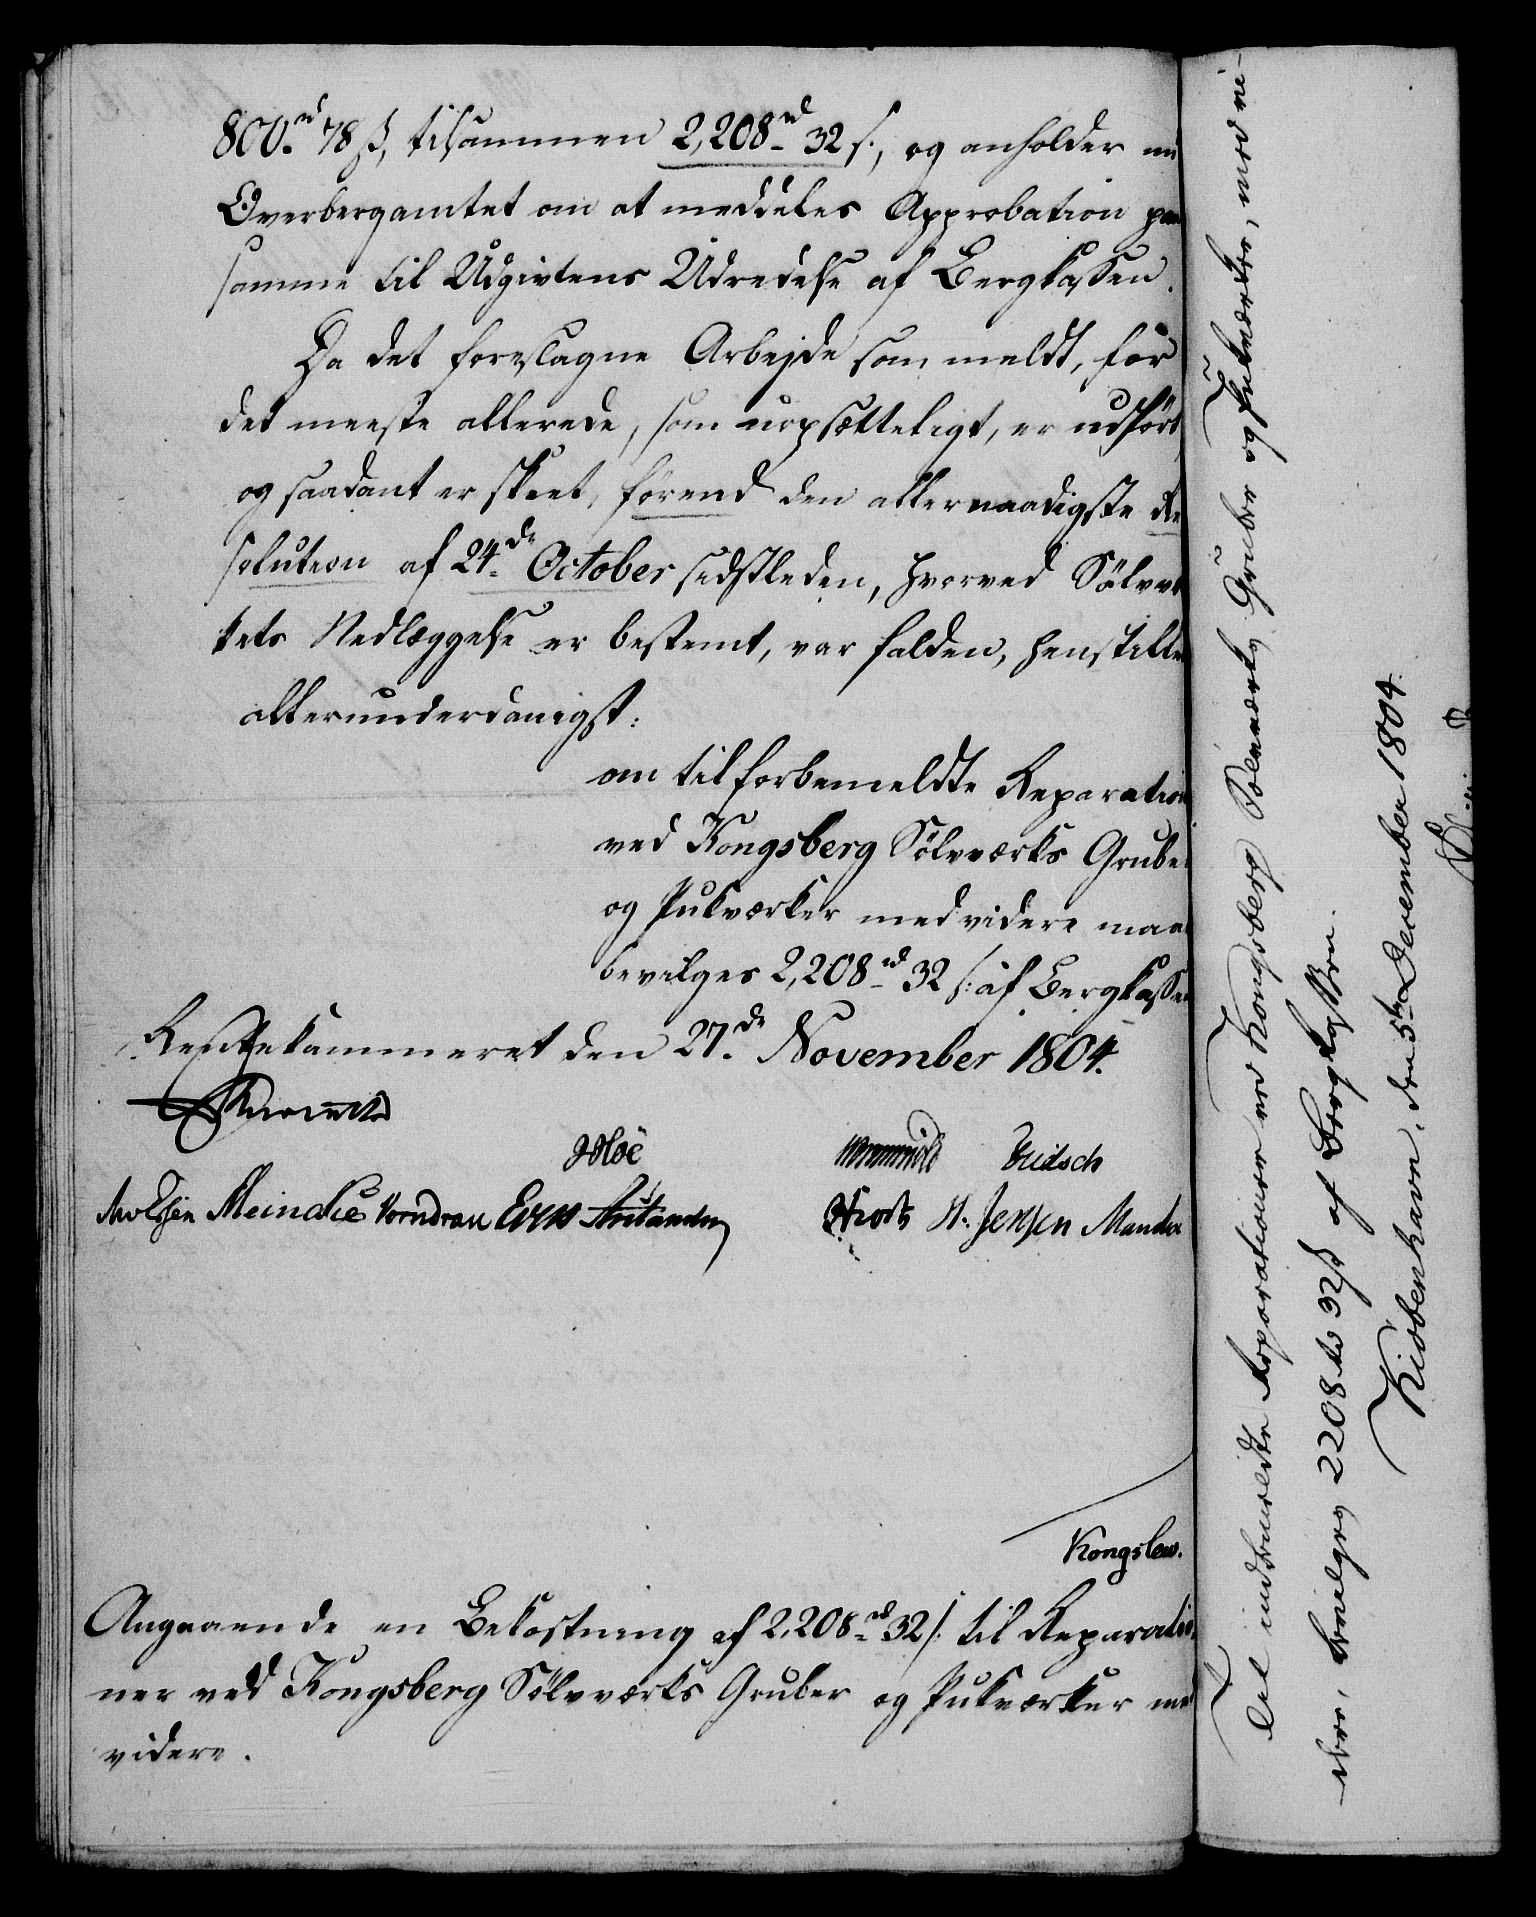 800 rd 78 ß, tilsammen 2,208 rd 32 s., og anholder nu
Overbergamtet om at meddeles Approbation paa
samme til Udgivtens Udredelse af Bergkassen.
Da det foreslagne Arbejde som meldt, for
det meeste allerede, som uopsætteligt, er udført,
og saadant er skeet, førend den allernaadigste Re
solution af 24de October sidstleden, hvorved Sølvvær
kets Nedlæggelse er bestemt, var falden, henstilles
allerunderdanigst:
om til forbemeldte Reparation
ved Kongsberg Sølvværks Gruber
og Pukværker med videre maae
bevilges 2,208 rd 32 s: af Bergkassen
Rentekammeret den 27de November 1804.
Hoë Wormskiold Fridsch
Meincke Vorndran Hiort H. Jensen Mander
Kongslew.
Angaaende en Bekostning af 2,208 rd 32 s. til Reparatio-
ner ved Kongsberg Sølvværks Gruber og Pukværker med
videre.
Til indbemeldte Reparationer ved Kongsberg Sølvværks Gruber og Pukværker, med vi-
dere, bevilges 2208 rd 32 ß af Bergkassen.
Kiøbenhavn, den 5te December 1804.